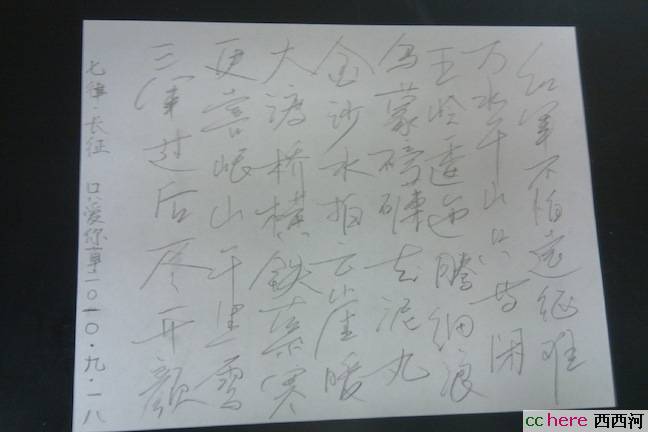 红军不怕远征难
万水千山只等闲
五岭逶迤腾细浪
乌蒙磅礴走泥丸
金沙水拍云崖暖
大渡桥横铁索寒
更喜岷山千里雪
三军过后尽开颜
七律·长征 口爱你草二〇一〇·九·一八
cchere 西西河